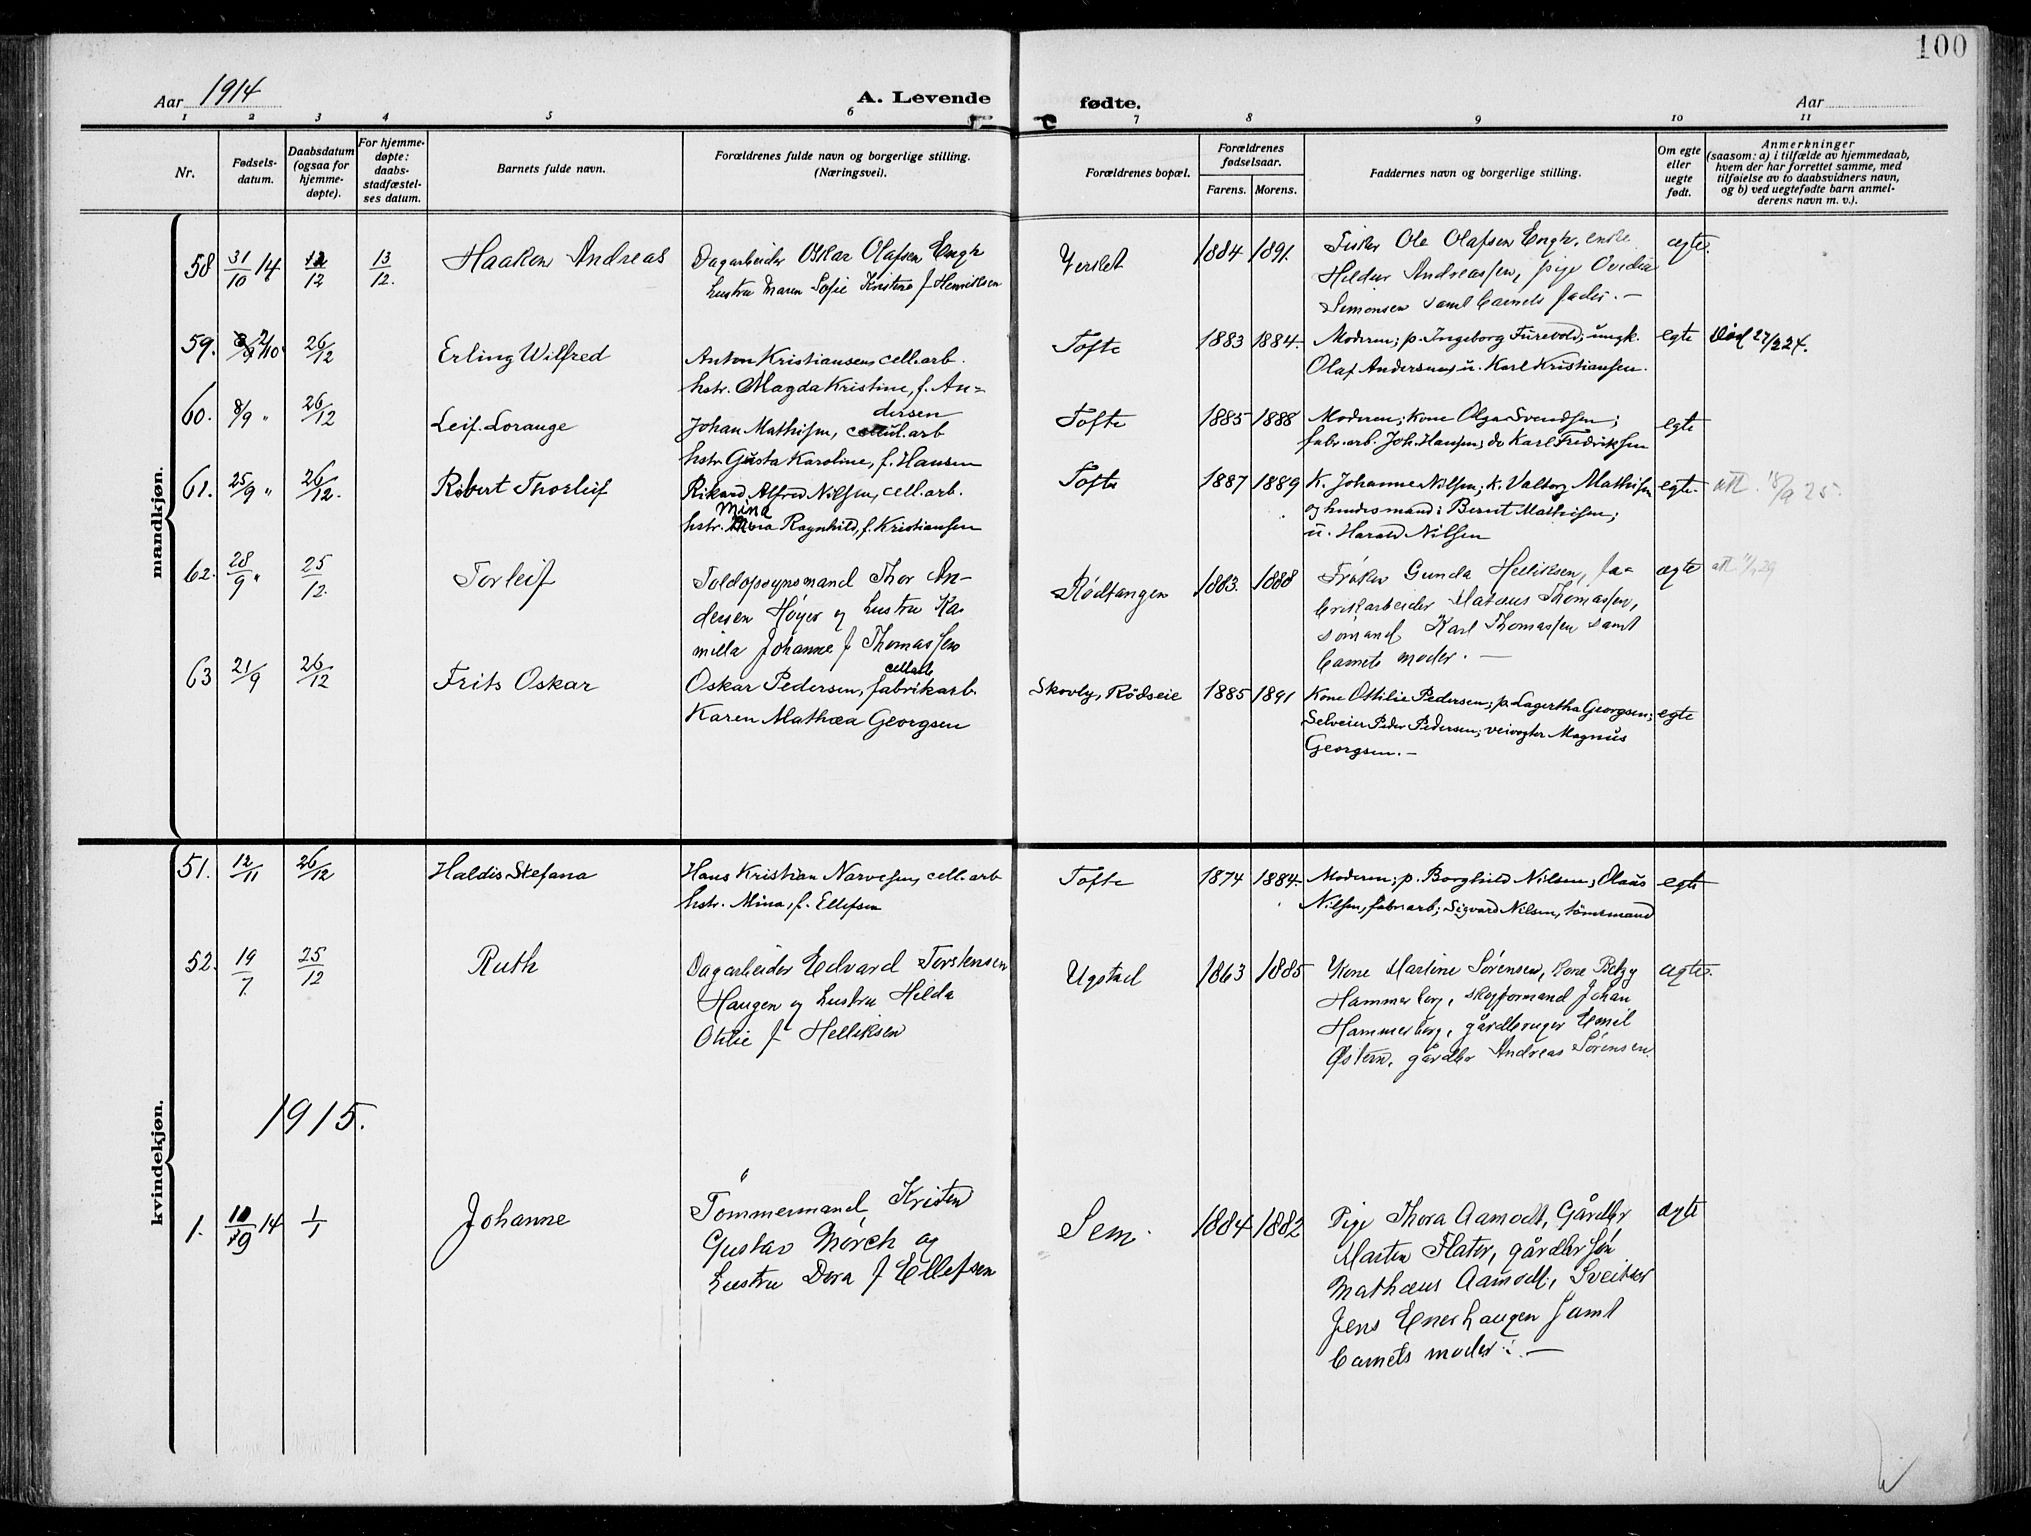 100
Aar 1914 A. Levende fødte. Aar
1 2 3 4 5 6 7 8 9 10 11
Nr.
Fødsels-
datum.
Daabsdatum
(ogsaa for
hjemme-
døpte).
For hjemme-
døpte:
daabs-
stadfæstel-
ses datum.
Barnets fulde navn.
Forældrenes fulde navn og borgerlige stilling.
(Næringsvei).
Forældrenes bopæl.
Forældrenes
fødselsaar.
Farens. Morens.
Faddernes navn og borgerlige stilling.
Om egte
eller
uegte
født.
Anmerkninger
(saasom: a) i tilfælde av hjemmedaab,
hvem der har forrettet samme, med
tilføielse av to daabsvidners navn,
og b) ved uegtefødte barn anmel-
derens navn m. v.).
mandkjøn.
58 31/10 14 12/12 13/12. Haakon Andreas
Dagarbeider Oskar Olafsen Engh
hustru Maren Sofie Kristine f Henriksen
Verslet 1884 1891.
Fisker Ole Olafsen Engh, enke
Hildur Andreassen, pige Ovedia
Simonsen samt barnets fader. —
ægte.
59. 2/10 26/12 Erling Wilfred
Anton Kristiansen, cell.arb.
hstr. Magda Kristine, f. An=
dersen
Tofte 1883 1884.
Moderen; p. Ingeborg Furevold; ungk.
Olaf Andersen; u. Karl Kristiansen.
egte Død 27/2 24.
60. 8/9 " 26/12 Leif Lorange
Johan Mathisen, cellul.arb
hstr. Gusta Karoline, f. Hansen
Tofte 1885 1888
Moderen; Kone Olga Svendsen;
fabr.arb. Joh. Hansen; do Karl Fredriksen
egte
61. 25/9 " 26/12. Robert Thorleif
Rikard Alfred Nilsen, cell.arb.
Mina
hstr. Ragnhild, f. Kristiansen
Tofte 1887 1889
K. Johanne Nilsen; k. Valborg Mathisen
og hendes mand: Bernt Mathisen;
u. Harald Nilsen
egte. att. 18/9 25.
62. 28/9 " 25/12. Torleif
Toldopsynsmand Thor An-
dersen Høyer og hustru Ka
milla Johanne f Thomassen
Rødtangen 1883. 1888
Frøken Gunda Helliksen, fa-
brikarbeider Matæus Thomassen,
sømand Karl Thomassen samt
barnets moder. —
ægte
63 21/9 26/12 Frits Oskar
Oskar Pedersen, fabrikarb.
Karen Mathea Georgsen
Skovly, Rødseie 1885 1891
Kone Ottilie Pedersen; p. Lagertha Georgsen;
Selveier Peder Pedersen; veivogter Magnus
Georgsen. —
egte
kvindekjøn.
51. 12/11 26/12 Haldis Stefana
Hans Kristian Narvesen, cell.arb
hstr. Mina, f. Ellefsen
Tofte 1874 1884.
Moderen; p. Borghild Nilsen; Olaus
Nilsen, fabr.arb; Sigvard Nilsen, tømmermand
egte
52. 19/7. 25/12 Ruth
Dagarbeider Edvard Torstensen
Haugen og hustru Hilda
Otilie f Helliksen
Ugstad 1863 1885
Kone Martine Sørensen, kone Betzy
Hammerberg, skogformand Johan
Hammerberg, gårdbruger Emil
Østern, gårdbr Andreas Sørensen.
ægte.
1915.
1. 10/9 14 1/1 Johanne
Tømmermand Kristen
Gustav Mörch og
hustru Dora f Ellefsen
Sem. 1884 1882
Pige Thora Aamodt, Gårdbr
Marten Flater, gårdbr søn
Mathæus Aamodt, Sveitser
Jens Enerhaugen samt
barnets moder. —
ægte